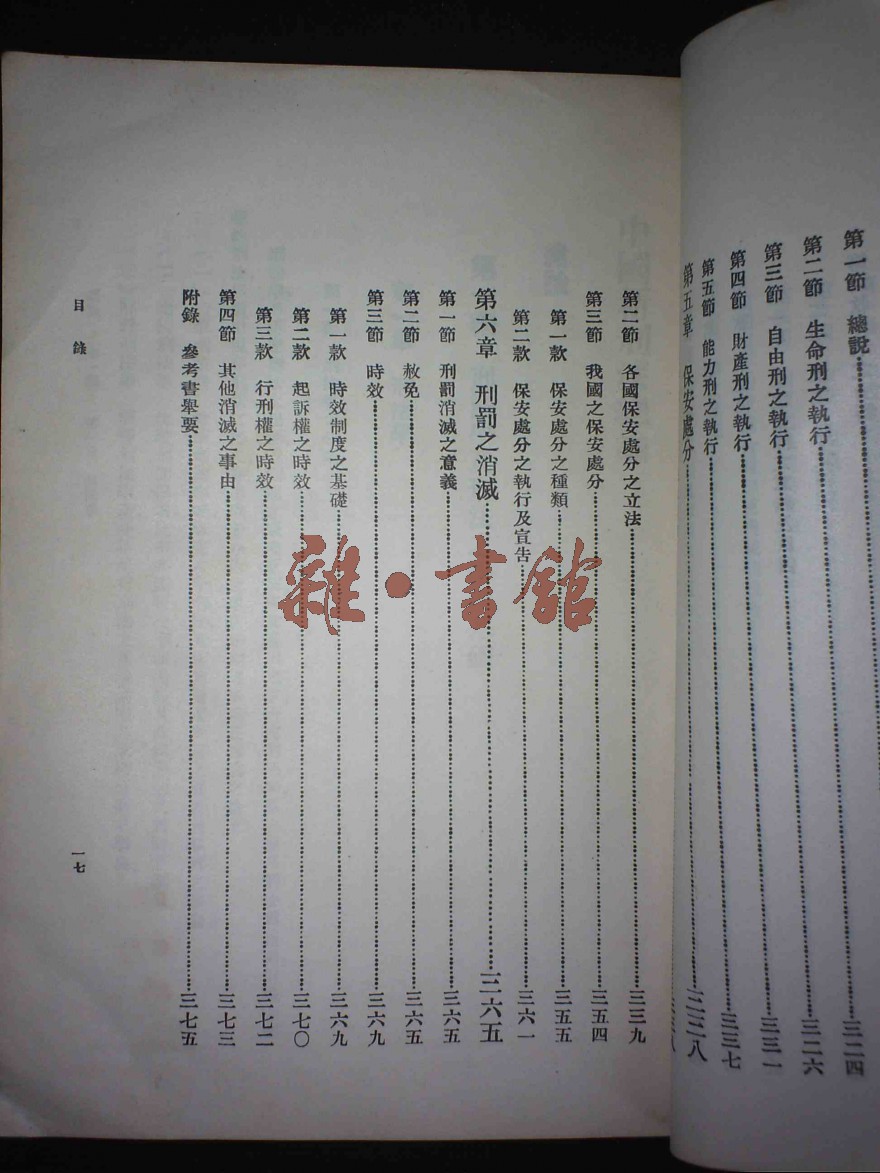 第一節　總說……三二四
第二節　生命刑之執行……三二六
第三節　自由刑之執行……三三一
第四節　財產刑之執行……三三七
第五節　能力刑之執行……三三八
第五章　保安處分
第二節　各國保安處分之立法……三三九
第三節　我國之保安處分……三五四
第一款　保安處分之種類……三五五
第二款　保安處分之執行及宣告……三六一
第六章　刑罰之消滅……三六五
第一節　刑罰消滅之意義……三六五
第二節　赦免……三六五
第三節　時效……三六九
第一款　時效制度之基礎……三六九
第二款　起訴權之時效……三七〇
第三款　行刑權之時效……三七二
第四節　其他消滅之事由……三七三
附錄　參考書舉要……三七五
目錄
一七
雜·書館